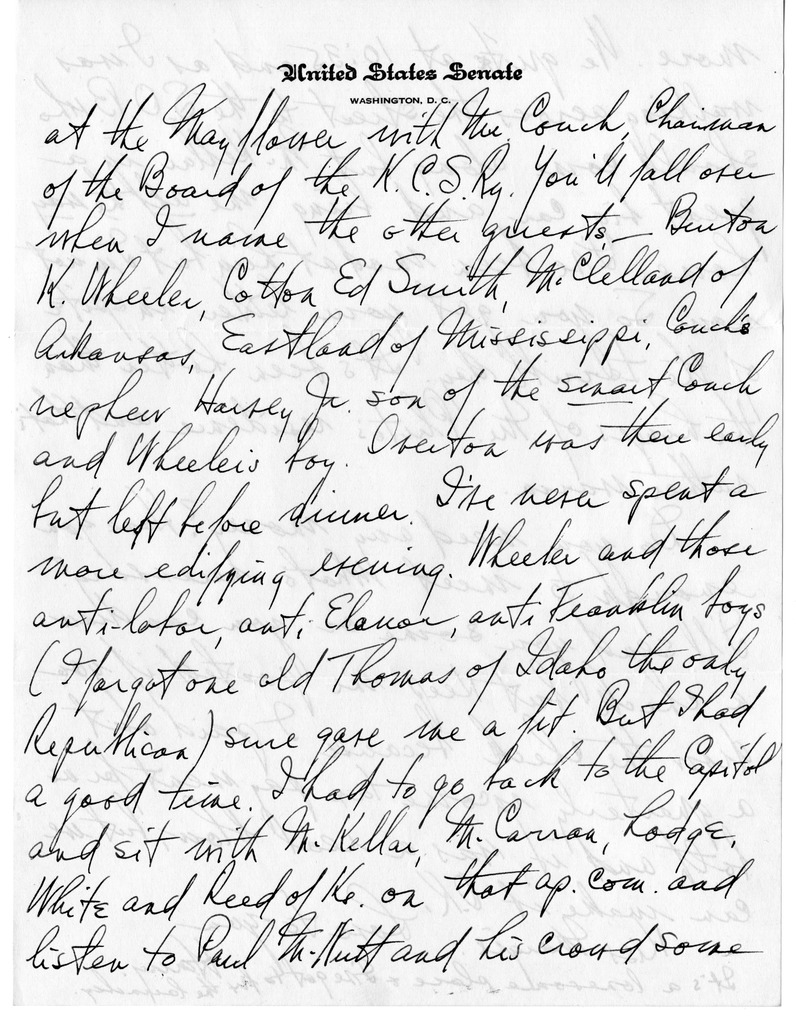 United States Senate
WASHINGTON, D. C.
at the Mayflower with Mr. Couch, Chairman
of the Board of the K.C.S.Ry. You'll fall over
when I name the other guests — Burton
K. Wheeler, Cotton Ed Smith, McClelland of
Arkansas, Eastland of Mississippi, Couch's
nephew Harvey Jr. son of the smart Couch
and Wheeler's boy. Overton was there early
but left before dinner. I've never spent a
more edifying evening. Wheeler and those
anti-labor, anti Elanor, anti Franklin boys
(I forgot one old Thomas of Idaho the only
Republican) sure gave me a fit. But I had
a good time. I had to go back to the Capitol
and sit with McKellar, McCarran, Lodge,
White and Reed of Ke. on that ap. com. and
listen to Paul McNutt and his crowd some